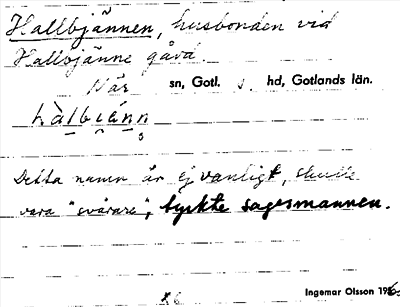 Hallbjännen, husbonden vid
Hallbjänne gård.
När sn, Gotl. s. hd, Gotlands län.
Detta namn är ej vanligt, skulle
vara "svårare", tyckte sagesmannen.
Ingemar Olsson 19